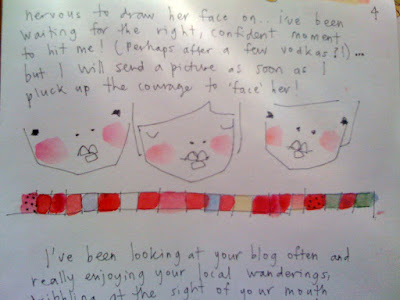 nervous to draw her face on... i've been
4
waiting for the right, confident moment
to hit me! (perhaps after a few vodkas?!)...
but I will send a picture as soon as I
pluck up the courage to 'face' her!
I've been looking at your blog often and
really enjoying your local wanderings,
dribbling at the sight of your mouth